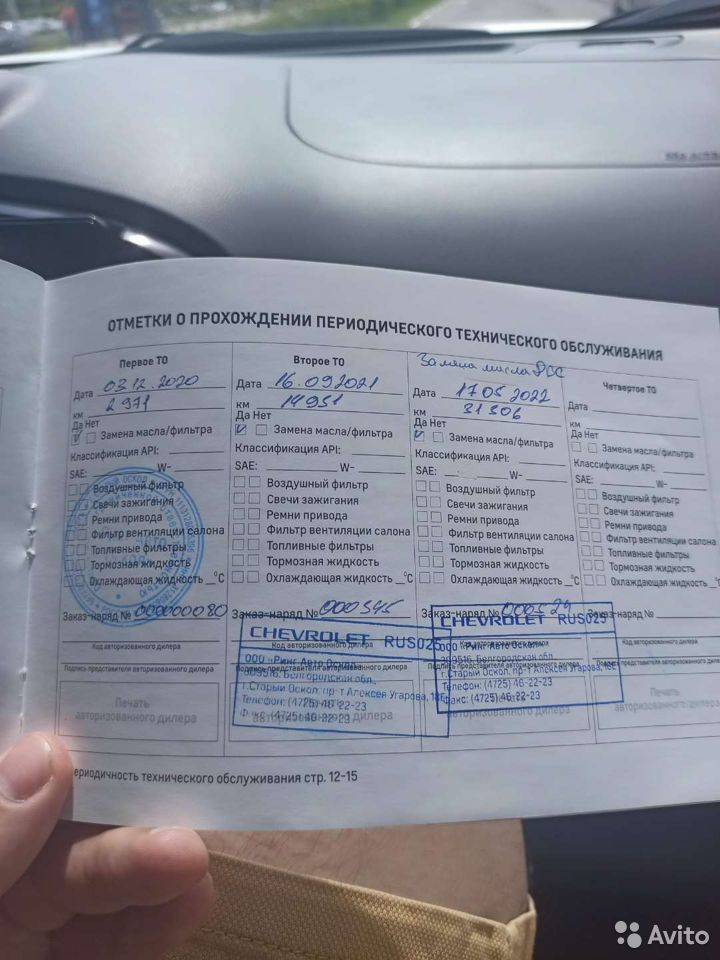 ОТМЕТКИ О ПРОХОЖДЕНИИ ПЕРИОДИЧЕСКОГО ТЕХНИЧЕСКОГО ОБСЛУЖИВАНИЯ
Первое ТО
Дата 03.12.2020
км 2 971
Да Нет
Замена масла/фильтра
Классификация API:
SAE: W-
Воздушный фильтр
Свечи зажигания
Ремни привода
Фильтр вентиляции салона
Топливные фильтры
Тормозная жидкость
Охлаждающая жидкость °C
Заказ-наряд № 000000080
Код авторизованного дилера
Подпись представителя авторизованного дилера
Печать
авторизованного дилера
Второе ТО
Дата 16.09.2021
км 14951
Да Нет
Замена масла/фильтра
Классификация API:
SAE: W-
Воздушный фильтр
Свечи зажигания
Ремни привода
Фильтр вентиляции салона
Топливные фильтры
Тормозная жидкость
Охлаждающая жидкость °C
Заказ-наряд № 000345
CHEVROLET RUS025
ООО «Ринг Авто Оскол»
309516, Белгородская обл.,
г.Старый Оскол, пр-т Алексея Угарова, 18Е
Телефон: (4725) 46-22-23
Факс: (4725) 46-22-23
Замена масла ДВС
Дата 17 05 2022
км 31 306
Да Нет
Замена масла/фильтра
Классификация API:
SAE: W-
Воздушный фильтр
Свечи зажигания
Ремни привода
Фильтр вентиляции салона
Топливные фильтры
Тормозная жидкость
Охлаждающая жидкость °C
Заказ-наряд № 000524
CHEVROLET RUS025
ООО «Ринг Авто Оскол»
309516, Белгородская обл.,
г.Старый Оскол, пр-т Алексея Угарова, 18Е
Телефон: (4725) 46-22-23
Факс: (4725) 46-22-23
Четвертое ТО
Дата
км
Да Нет
Замена масла/фильтра
Классификация API:
SAE: W-
Воздушный фильтр
Свечи зажигания
Ремни привода
Фильтр вентиляции салона
Топливные фильтры
Тормозная жидкость
Охлаждающая жидкость °C
Заказ-наряд №
Код авторизованного дилера
Подпись представителя авторизованного дилера
Печать
авторизованного дилера
ериодичность технического обслуживания стр. 12-15
Avito